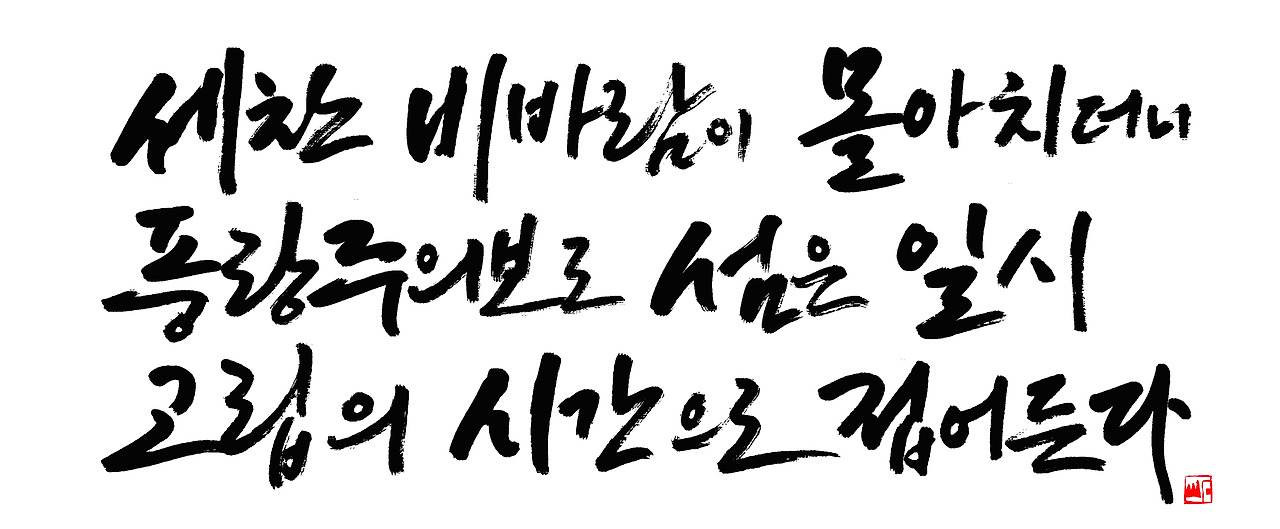 세찬 비바람이 몰아치더니
풍랑주의보로 섬은 일시
고립의 시간으로 접어든다